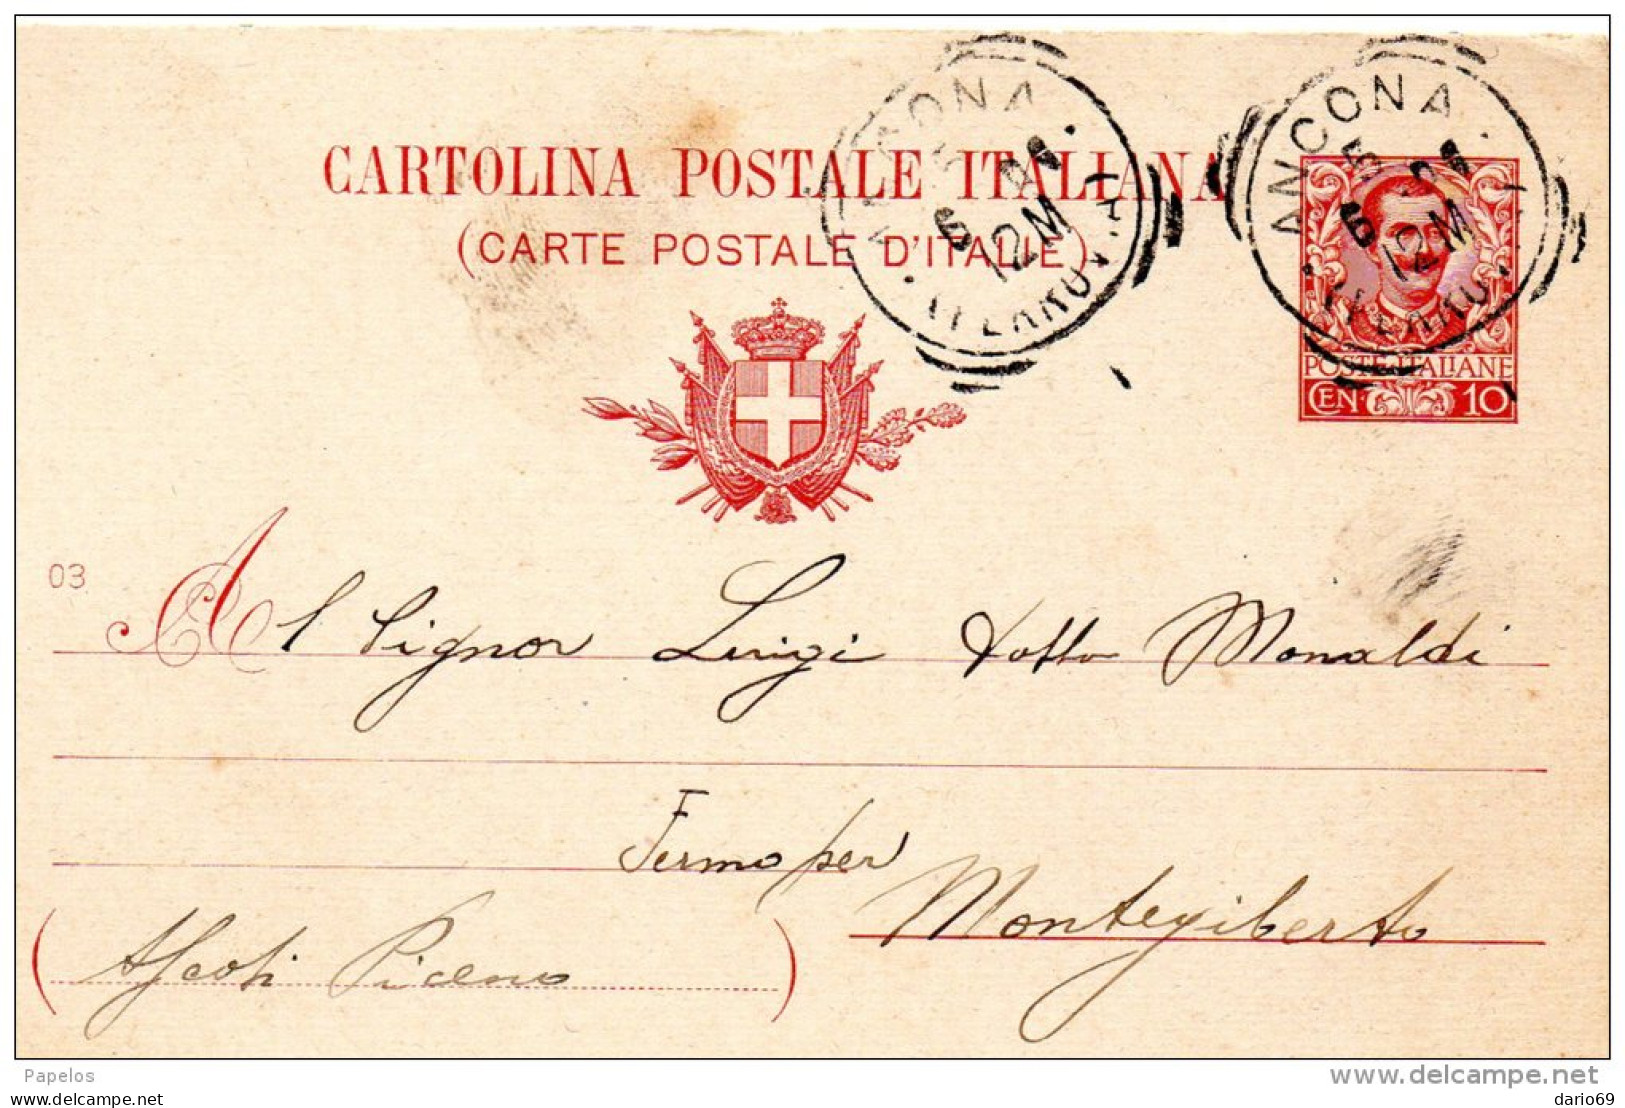 CARTOLINA POSTALE ITALIANA
(CARTE POSTALE D'ITALIE)
ANCONA
12 M
ANCONA
12 M
POSTE ITALIANE
CEN. 10
03
Al Signor Luigi Dottor Monaldi
Fermo per
Montegiberto
(Ascoli Piceno)
Papelos
www.delcampe.net
dario69